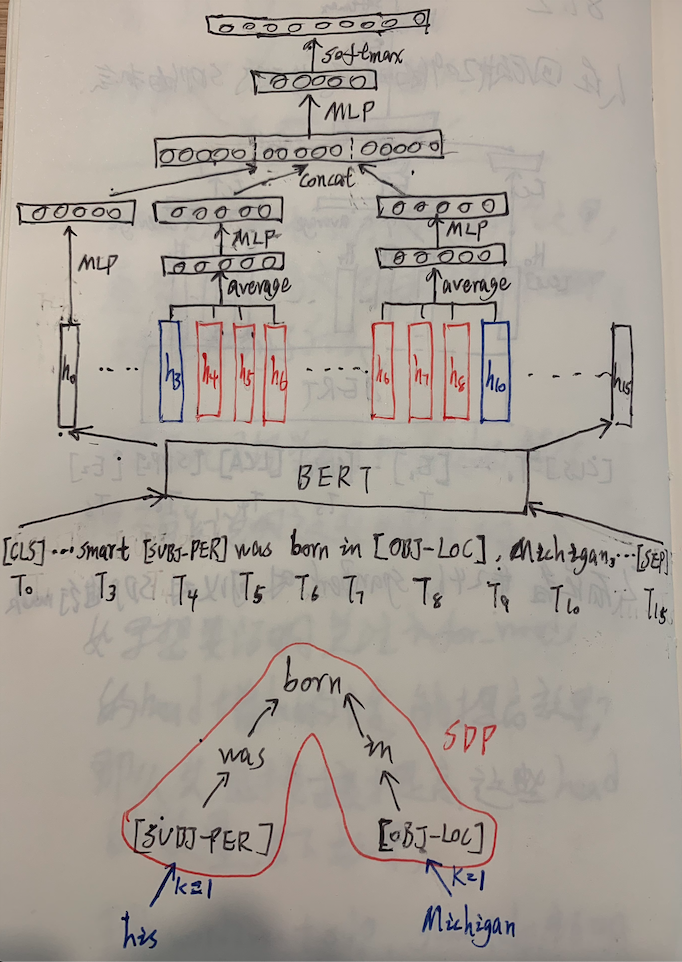 softmax
MLP
concat
MLP MLP MLP
average average
h₀ .... h₃ h₄ h₅ h₆ ...... h₆ h₇ h₈ h₁₀ ...... h₁₅
BERT
[CLS] ... smart [SUBJ-PER] was born in [OBJ-LOC], Michigan, ... [SEP]
T₀ T₃ T₄ T₅ T₆ T₇ T₈ T₉ T₁₀ ... T₁₅
born
SDP
was in
[SUBJ-PER] [OBJ-LOC]
K=1 K=1
his Michigan